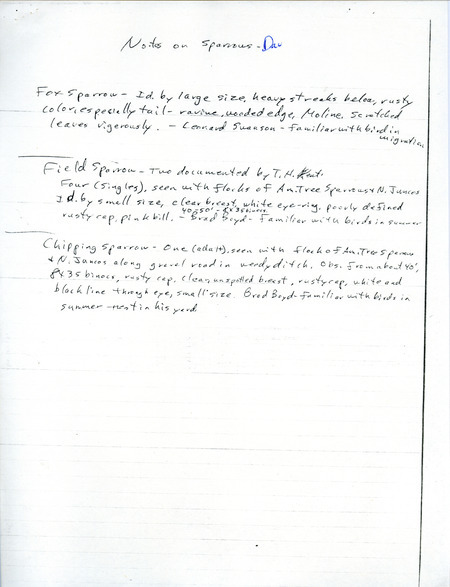 Notes on Sparrows - Dav
Fox Sparrow - Id. by large size, heavy streaks below, rusty
color, especially tail - ravine, wooded edge, Moline. Scratched
leaves vigerously. - Leonard Swanson - familiar with bird in
migration
Field Sparrow - Two documented by T. H. Kent.
Four (singles), seen with flocks of Am. Tree Sparrows & N. Juncos
Id. by small size, clear breast, white eye-ring, poorly defined
40-50' - 8x35 binocs
rusty cap, pink bill. - Brad Boyd - Familiar with birds in summer
Chipping Sparrow - One (adult), seen with flock of Am. Tree Sparrow
& N. Juncos along gravel road in weedy ditch. Obs. from about 40',
8x35 binocs, rusty cap, clear, unspotted breast, rusty cap, white and
black line through eye, small size. Brad Boyd - Familiar with birds in
summer - nest in his yard